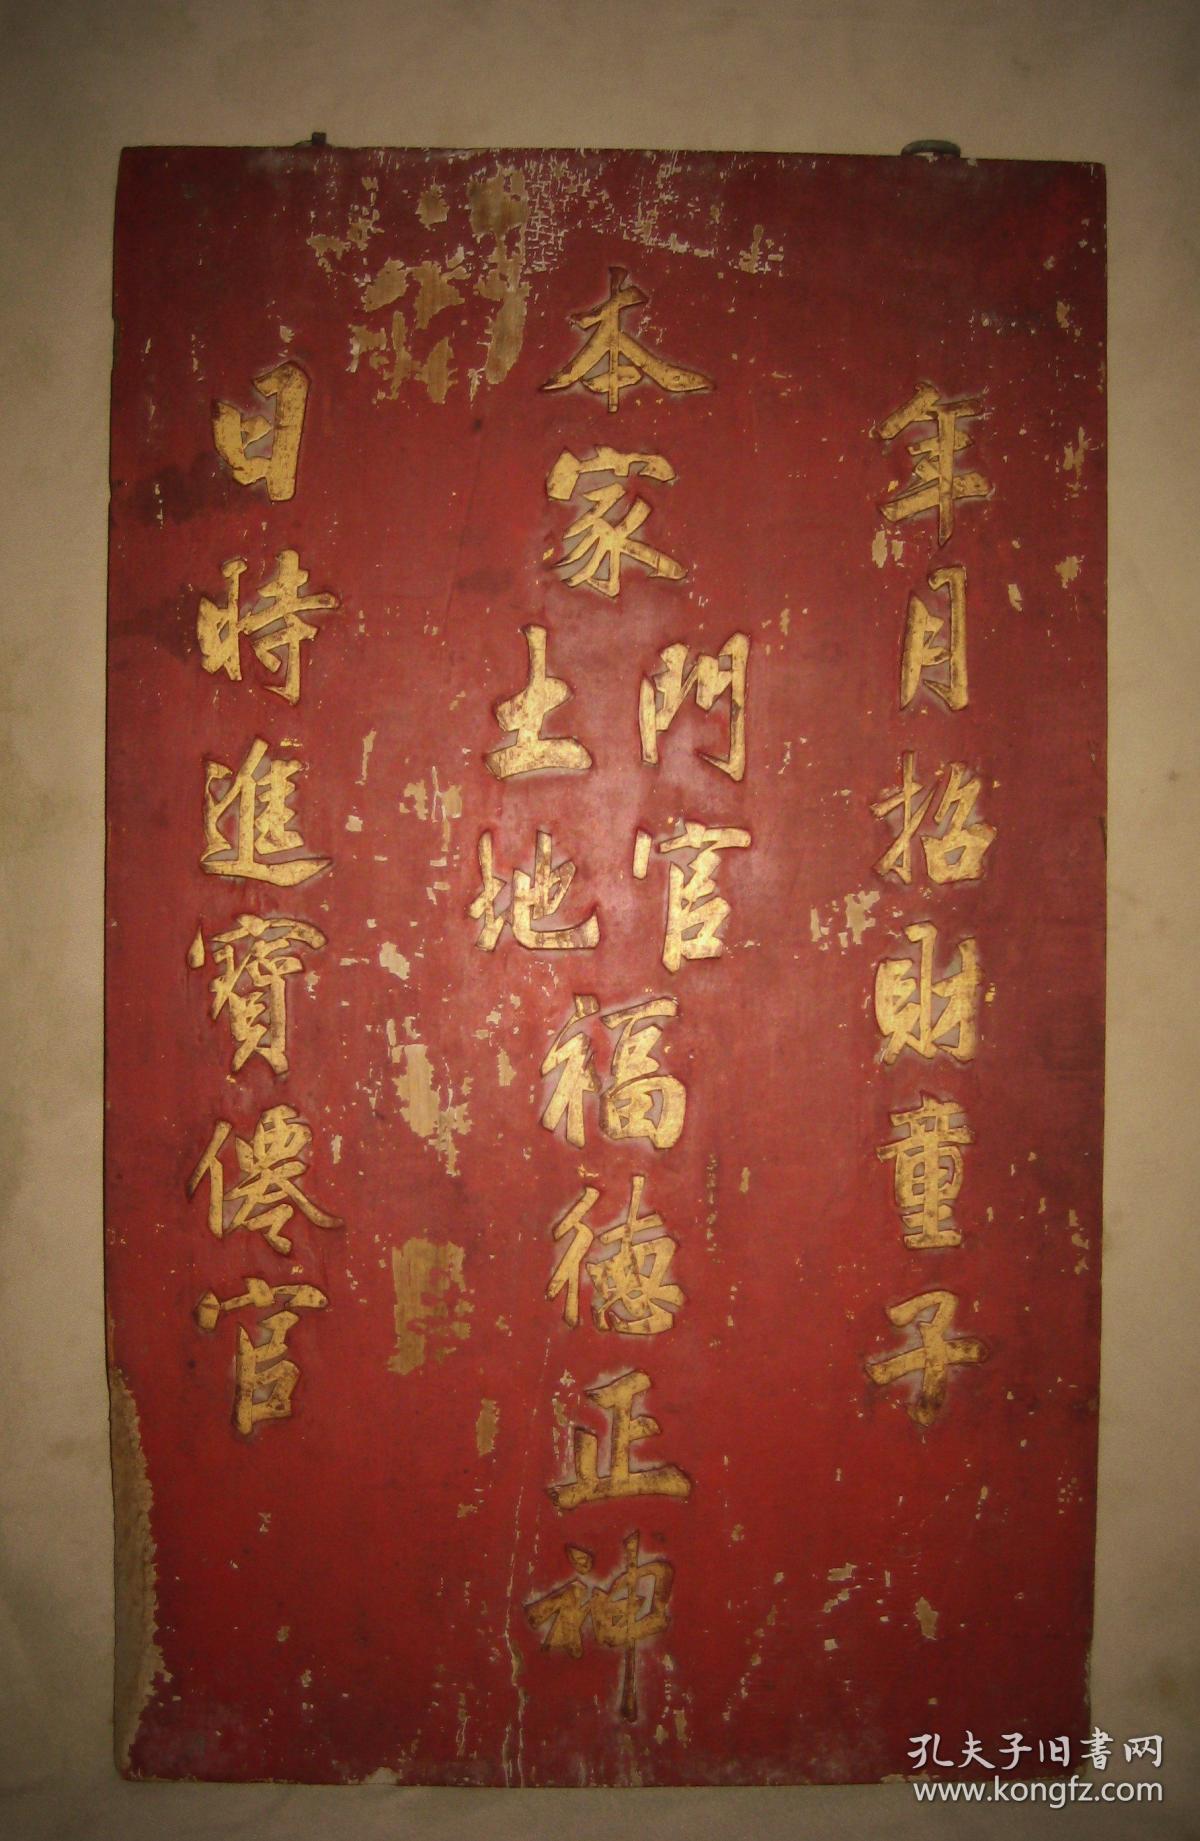 年月招財童子
本家
門官
土地
福德正神
日時進寶僊官
孔夫子旧書网
www.kongfz.com